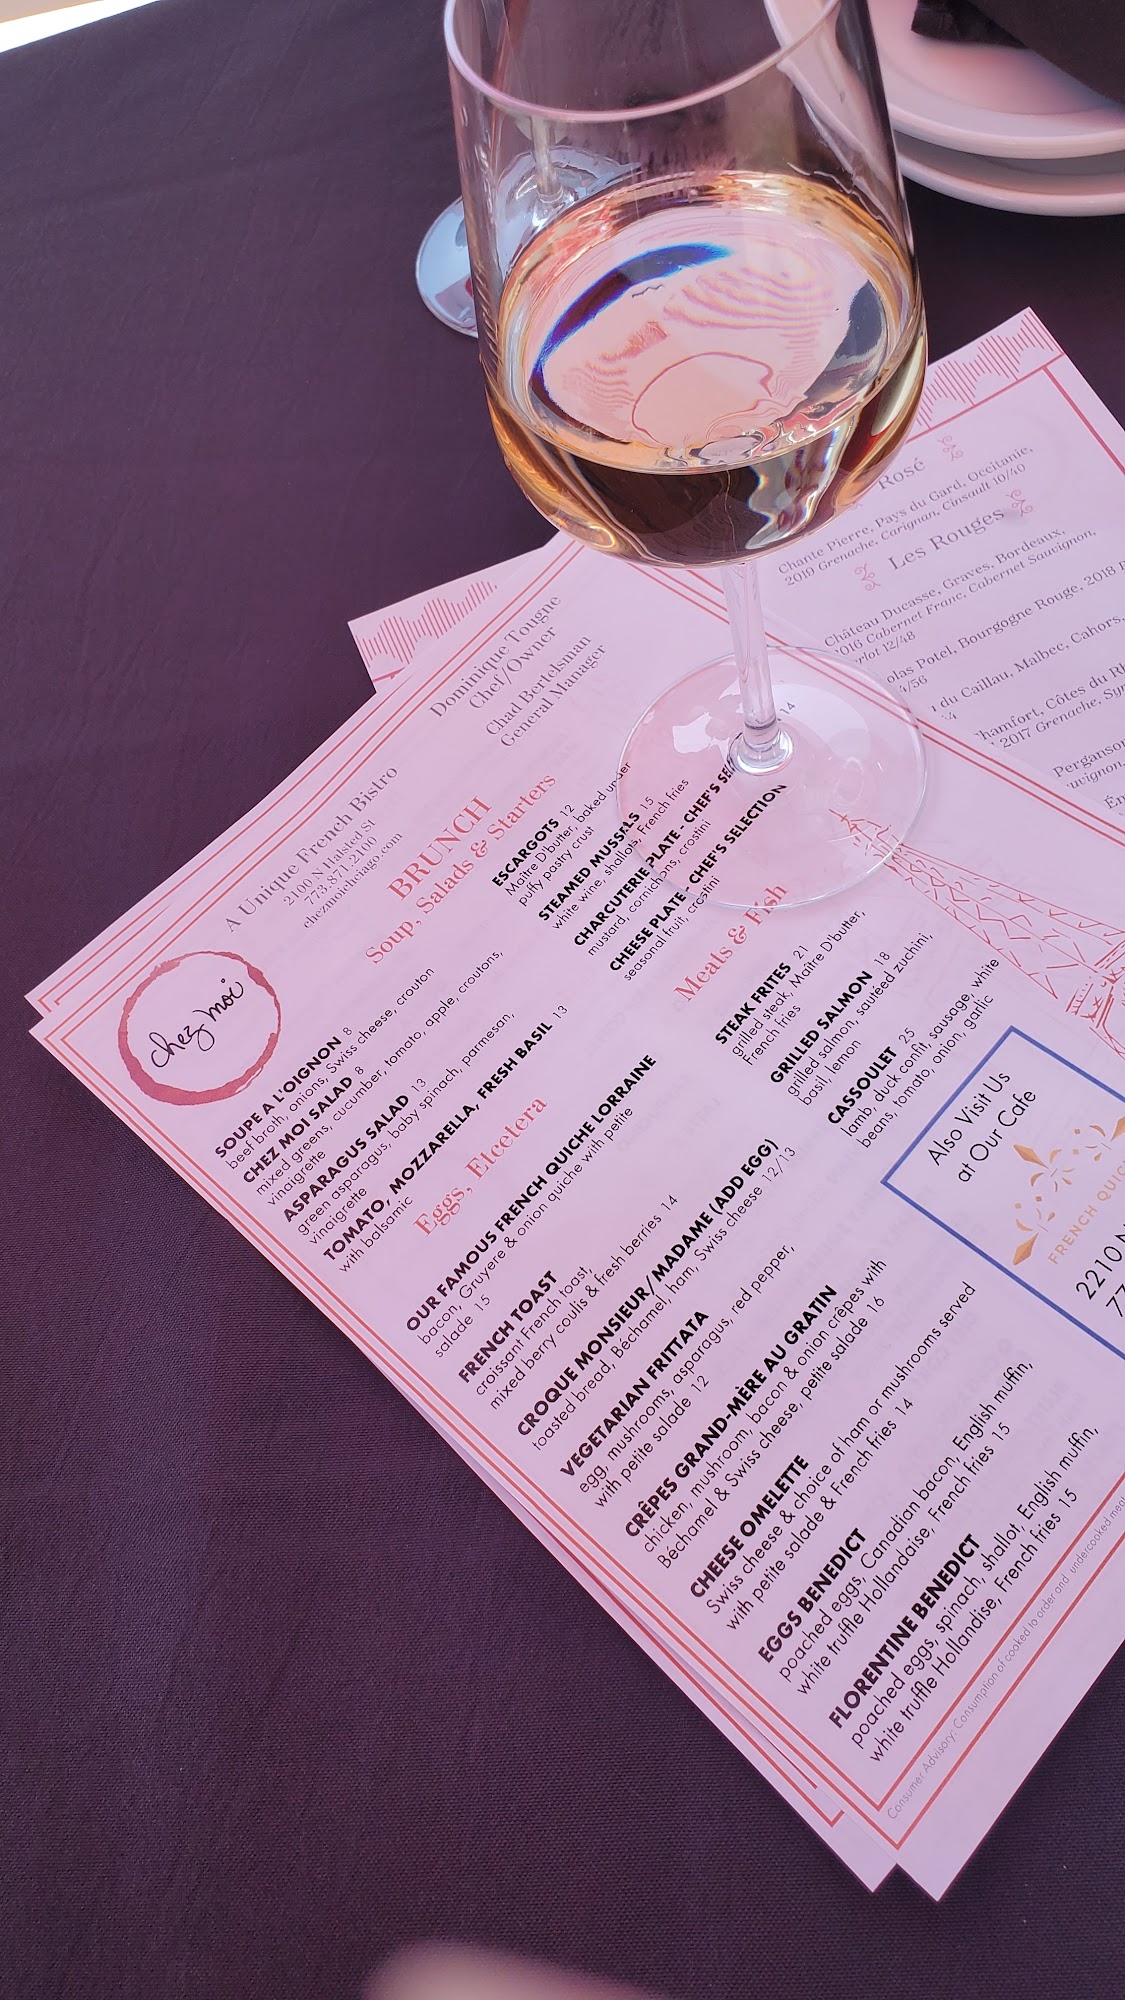 chez moi
A Unique French Bistro
2100 N Halsted St
773.871.2100
chezmoichciago.com
Dominique Tougne
Chef/Owner
Chad Bertelsman
General Manager
BRUNCH
Soup, Salads & Starters
SOUPE A L'OIGNON 8
beef broth, onions, Swiss cheese, crouton
CHEZ MOI SALAD 8
mixed greens, cucumber, tomato, apple, croutons,
vinaigrette
ASPARAGUS SALAD 13
green asparagus, baby spinach, parmesan,
vinaigrette
TOMATO, MOZZARELLA, FRESH BASIL 13
with balsamic
ESCARGOTS 12
Maître D'butter, baked under
puffy pastry crust
STEAMED MUSSELS 15
white wine, shallots, French fries
CHARCUTERIE PLATE - CHEF'S
14
mustard, cornichons, crostini
CHEESE PLATE - CHEF'S SELECTION
seasonal fruit, crostini
Eggs, Etcetera
OUR FAMOUS FRENCH QUICHE LORRAINE
bacon, Gruyere & onion quiche with petite
salade 15
FRENCH TOAST
croissant French toast,
mixed berry coulis & fresh berries 14
CROQUE MONSIEUR/MADAME (ADD EGG)
toasted bread, Béchamel, ham, Swiss cheese 12/13
VEGETARIAN FRITTATA
egg, mushrooms, asparagus, red pepper,
with petite salade 12
CRÊPES GRAND-MÈRE AU GRATIN
chicken, mushroom, bacon & onion crêpes with
Béchamel & Swiss cheese, petite salade 16
CHEESE OMELETTE
Swiss cheese & choice of ham or mushrooms served
with petite salade & French fries 14
EGGS BENEDICT
poached eggs, Canadian bacon, English muffin,
white truffle Hollandaise, French fries 15
FLORENTINE BENEDICT
poached eggs, spinach, shallot, English muffin,
white truffle Hollandise, French fries 15
Meats & Fish
STEAK FRITES 21
grilled steak, Maître D'butter,
French fries
GRILLED SALMON 18
grilled salmon, sautéed zuchini,
basil, lemon
CASSOULET 25
lamb, duck confit, sausage, white
beans, tomato, onion, garlic
Also Visit Us
at Our Cafe
FRENCH QUIC
2210 N
77
Consumer Advisory: Consumption of cooked to order and undercooked meat
Rosé
Chante Pierre, Pays du Gard, Occitanie,
2019 Grenache, Carignan, Cinsault 10/40
Les Rouges
Château Ducasse, Graves, Bordeaux,
2016 Cabernet Franc, Cabernet Sauvignon,
12/48
olas Potel, Bourgogne Rouge, 2018
4/56
du Caillau, Malbec, Cahors,
Chamfort, Côtes du
2017 Grenache,